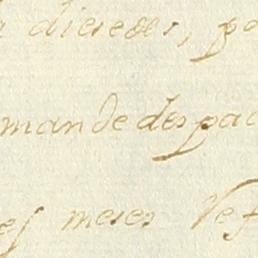 diesedes, pa
mande despac
es meses Vef